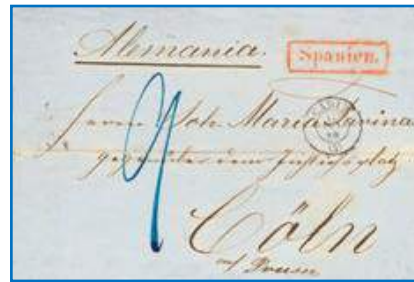 Alemania.
Spanien.
Herrn Joh. Maria Farina
gegenüber dem Jülichsplatz
Cöln